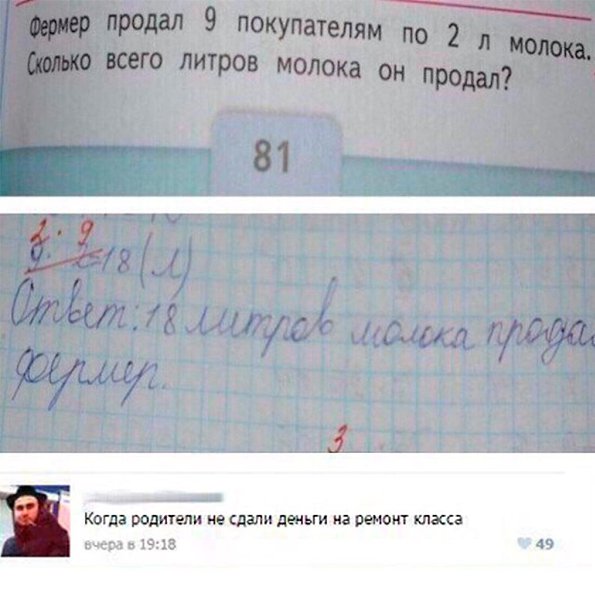 Фермер продал 9 покупателям по 2 л молока.
Сколько всего литров молока он продал?
81
2 · 9
9 · 2=18(л)
Ответ: 18 литров молока прода
фермер.
3
Когда родители не сдали деньги на ремонт класса
вчера в 19:18
49